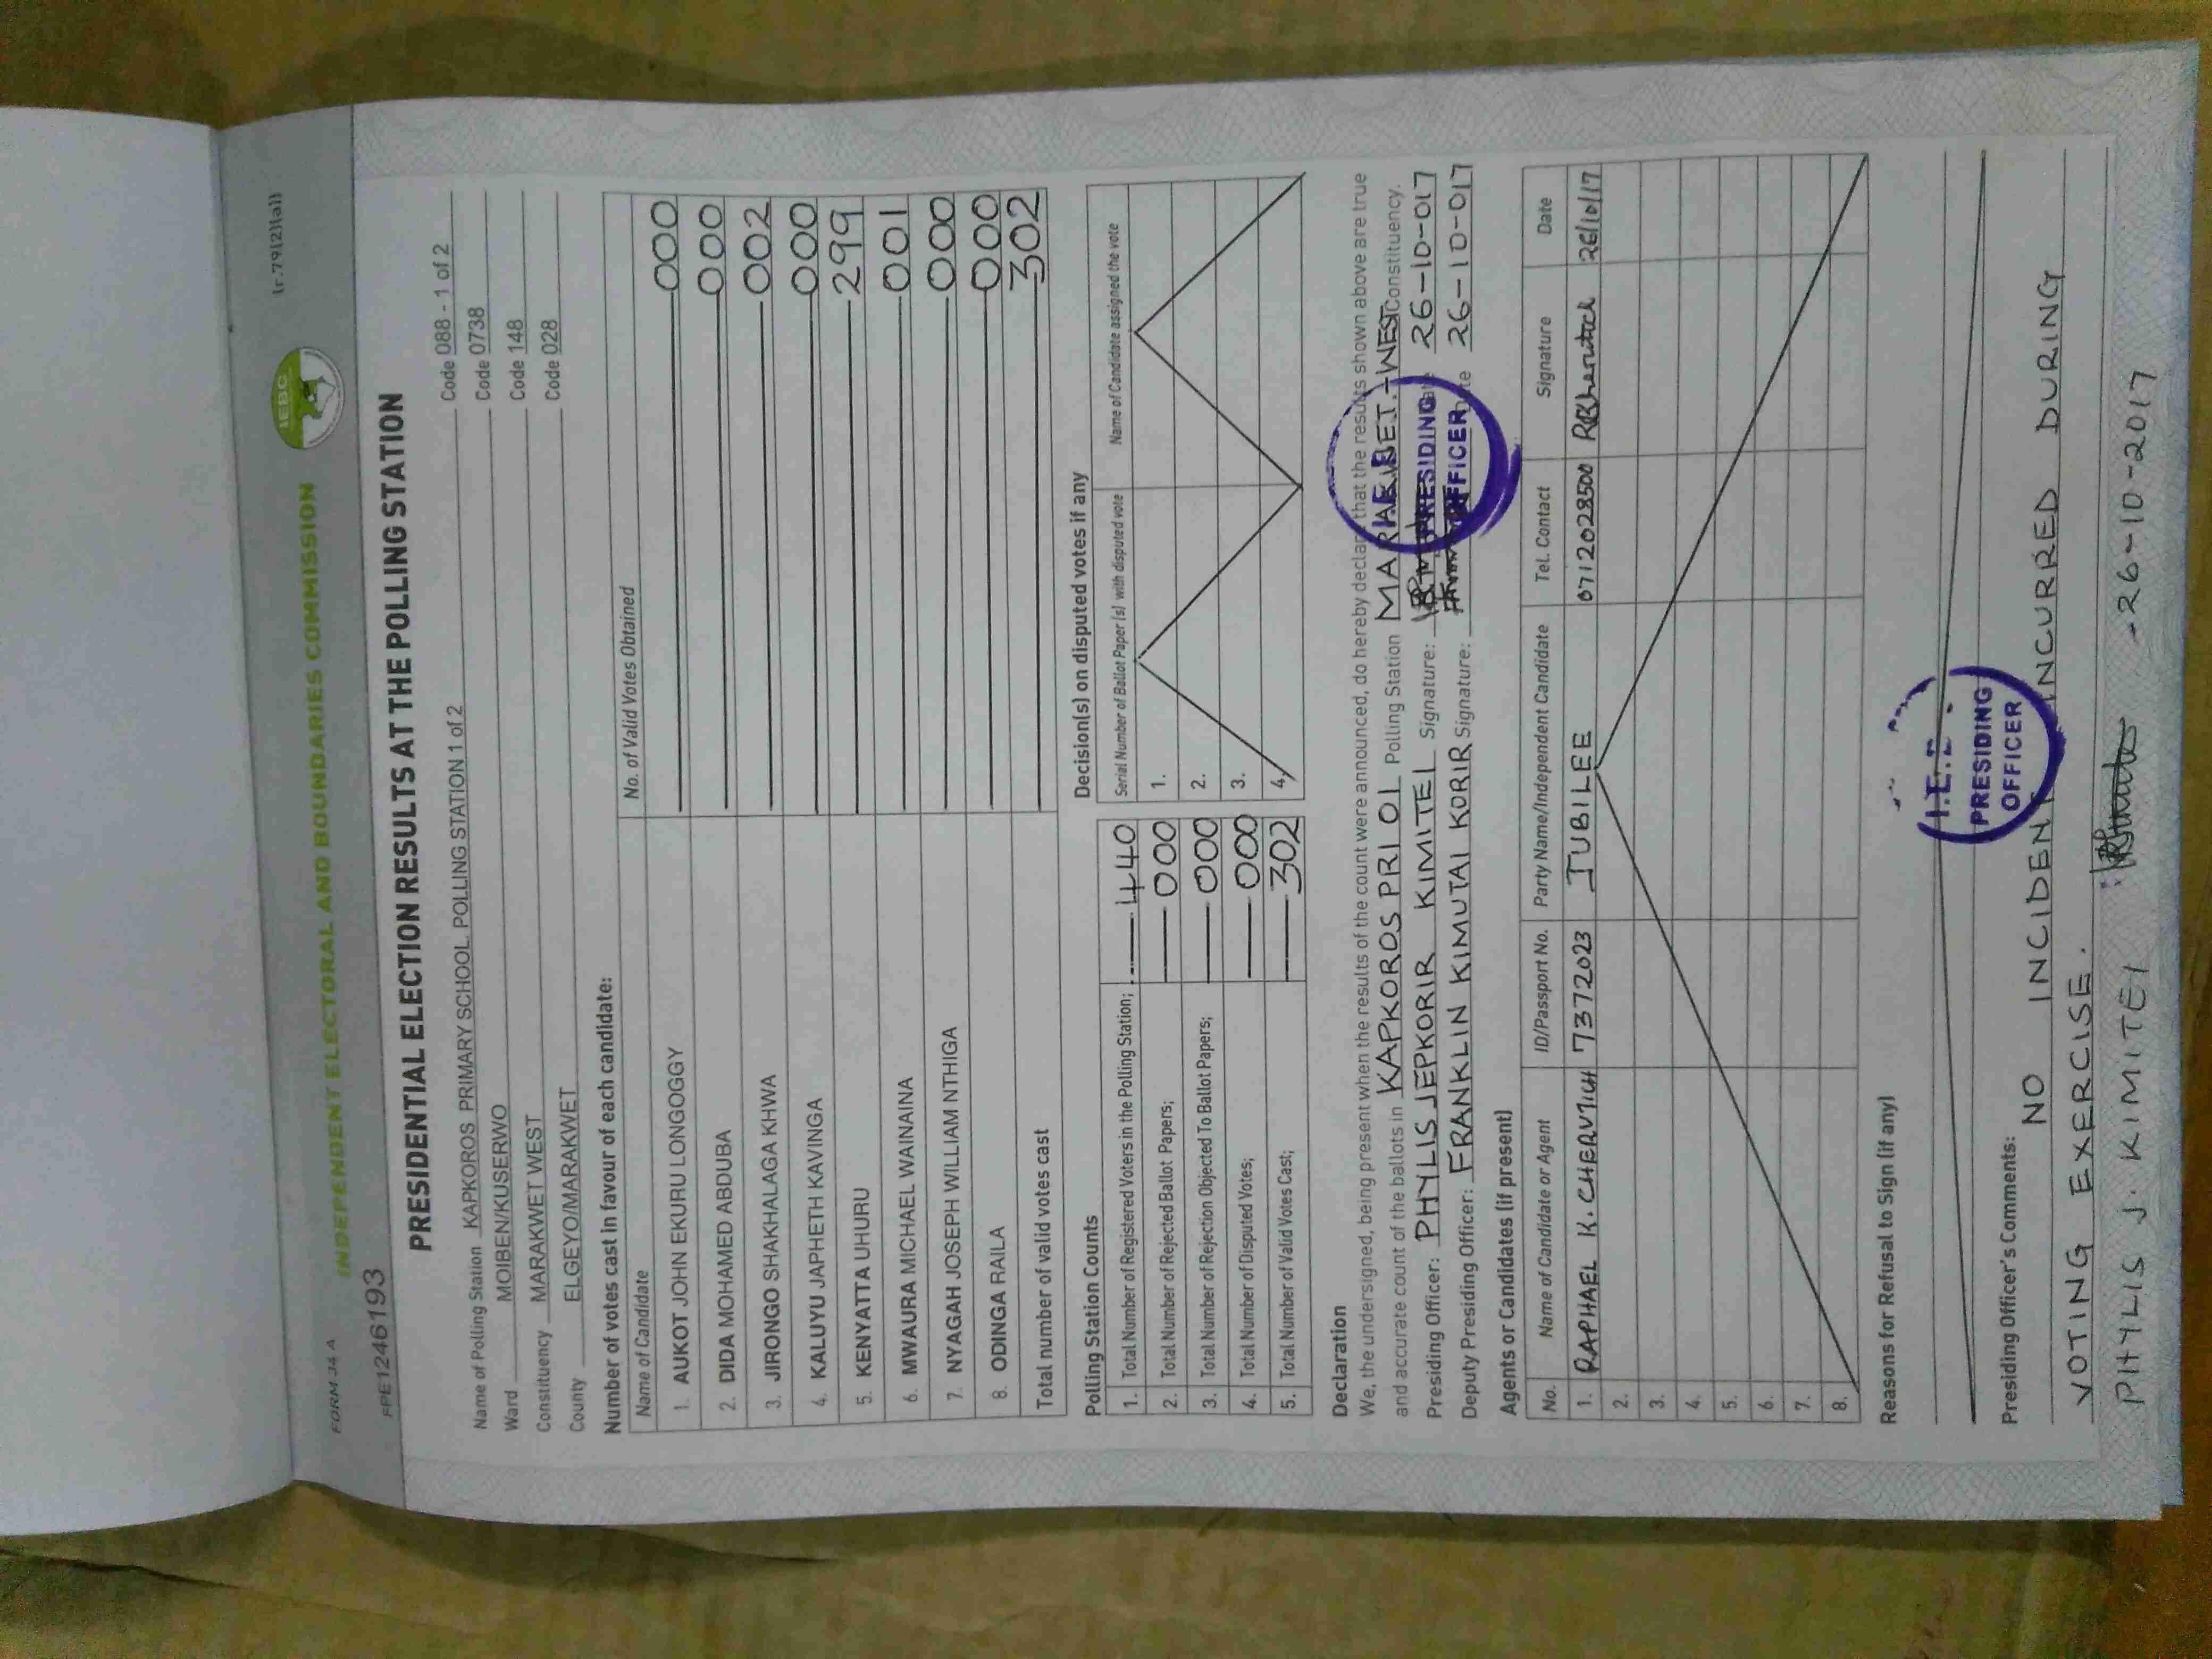 FORM 34 A
(r.79(2)(a))
INDEPENDENT ELECTORAL AND BOUNDARIES COMMISSION
IEBC
FPE1246193
PRESIDENTIAL ELECTION RESULTS AT THE POLLING STATION
Name of Polling Station KAPKOROS PRIMARY SCHOOL POLLING STATION 1 of 2 Code 088 - 1 of 2
Ward MOIBEN/KUSERWO Code 0738
Constituency MARAKWET WEST Code 148
County ELGEYO/MARAKWET Code 028
Number of votes cast in favour of each candidate:
Name of Candidate No. of Valid Votes Obtained
1. AUKOT JOHN EKURU LONGOGGY 000
2. DIDA MOHAMED ABDUBA 000
3. JIRONGO SHAKHALAGA KHWA 002
4. KALUYU JAPHETH KAVINGA 000
5. KENYATTA UHURU 299
6. MWAURA MICHAEL WAINAINA 001
7. NYAGAH JOSEPH WILLIAM NTHIGA 000
8. ODINGA RAILA 000
Total number of valid votes cast 302
Polling Station Counts
1. Total Number of Registered Voters in the Polling Station; 440
2. Total Number of Rejected Ballot Papers; 000
3. Total Number of Rejection Objected To Ballot Papers; 000
4. Total Number of Disputed Votes; 000
5. Total Number of Valid Votes Cast; 302
Decision(s) on disputed votes if any
Serial Number of Ballot Paper (s) with disputed vote Name of Candidate assigned the vote
1.
2.
3.
4.
Declaration
We, the undersigned, being present when the results of the count were announced, do hereby declare that the results shown above are true
and accurate count of the ballots in KAPKOROS PRI 01 Polling Station MARAKWET-WEST Constituency.
Presiding Officer: PHYLIS JEPKORIR KIMITEI Signature: Date 26-10-017
Deputy Presiding Officer: FRANKLIN KIMUTAI KORIR Signature: Date 26-10-017
PRESIDING
OFFICER
Agents or Candidates (if present)
No. Name of Candidate or Agent ID/Passport No. Party Name/Independent Candidate Tel. Contact Signature Date
1. RAPHAEL K. CHERUTICH 7372023 JUBILEE 0712028500 26/10/17
2.
3.
4.
5.
6.
7.
8.
Reasons for Refusal to Sign (if any)
PRESIDING
OFFICER
Presiding Officer's Comments:
NO INCIDENT INCURRED DURING
VOTING EXERCISE.
PHYLIS J. KIMITEI -26-10-2017